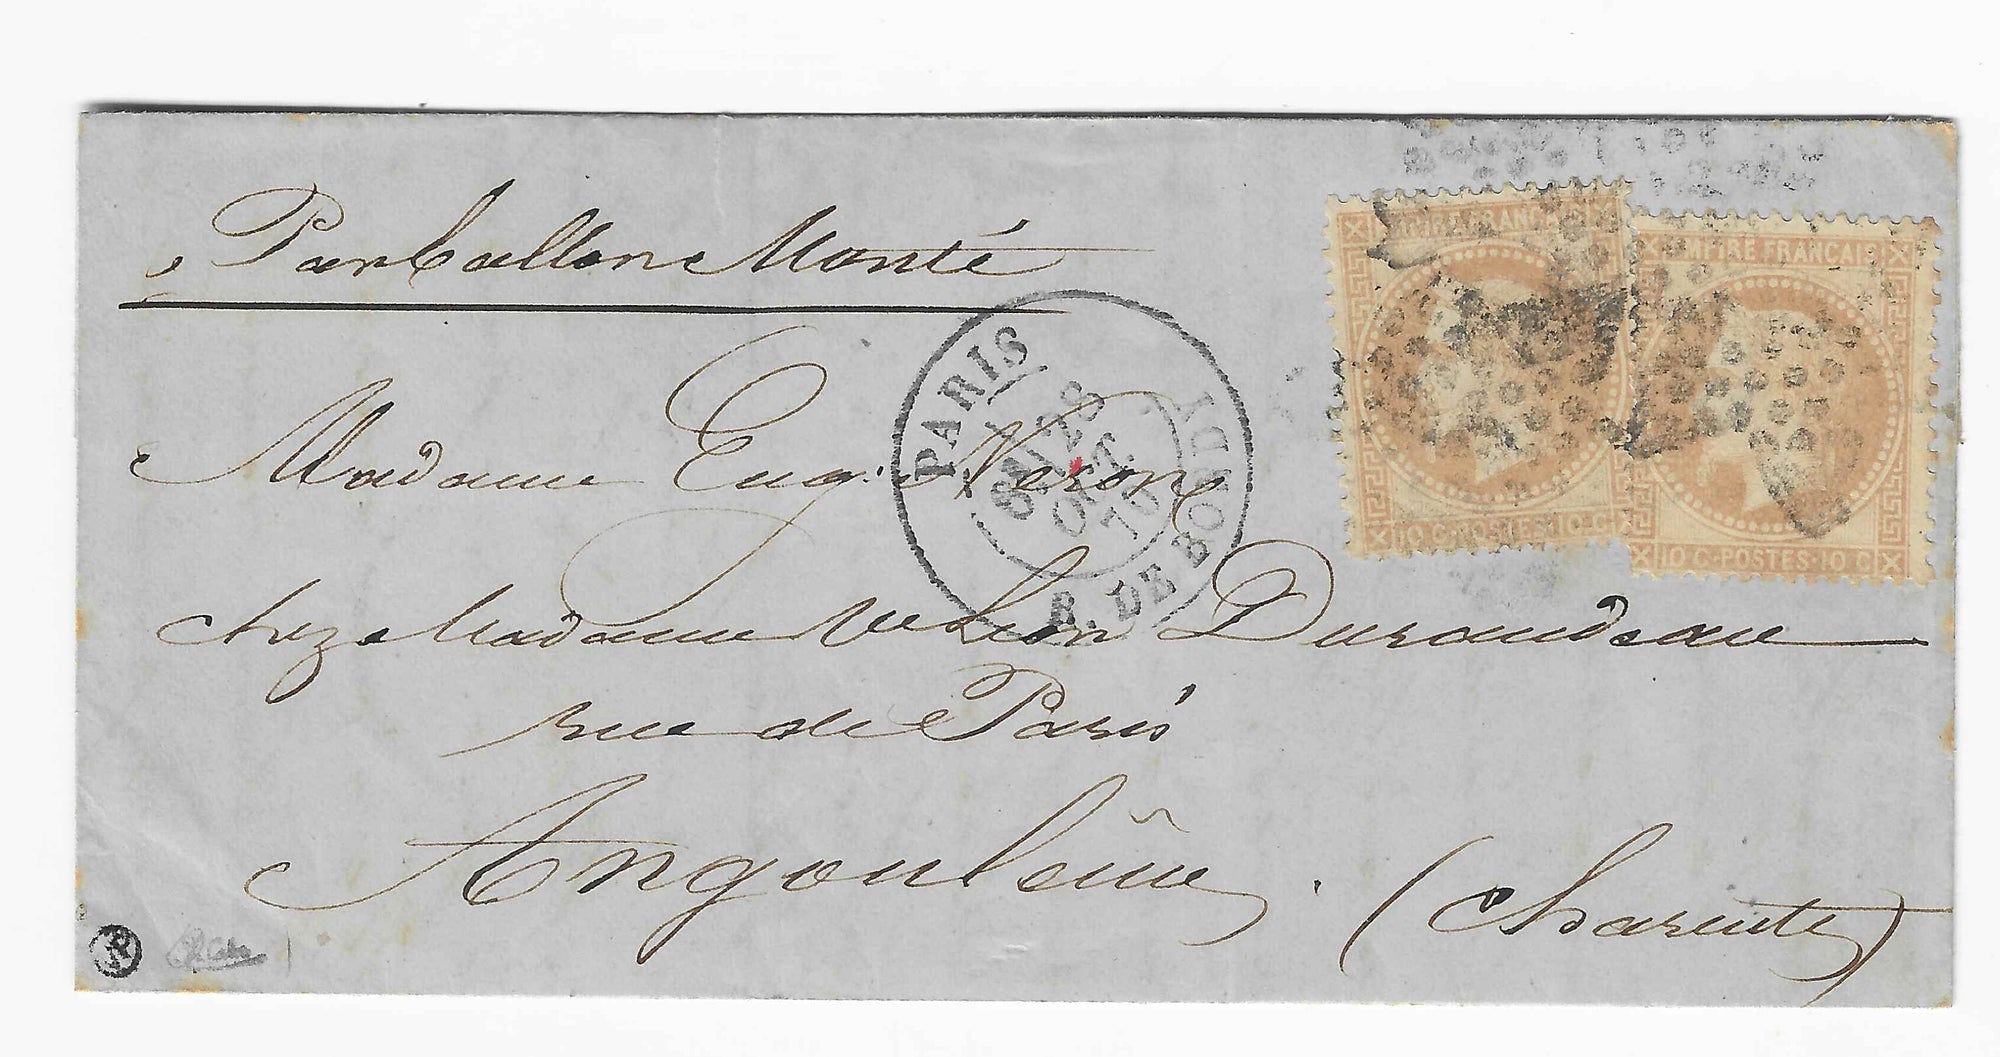 Par ballon Monté
Madame Eug. Veron
chez Madame Ve Leon Durandeau
rue de Paris
Angoulême . (Charente)
PARIS
R. DE BONDY
6E/28
OCT.
70
EMPIRE FRANÇAIS
10 C·POSTES·10 C
EMPIRE FRANÇAIS
10 C·POSTES·10 C